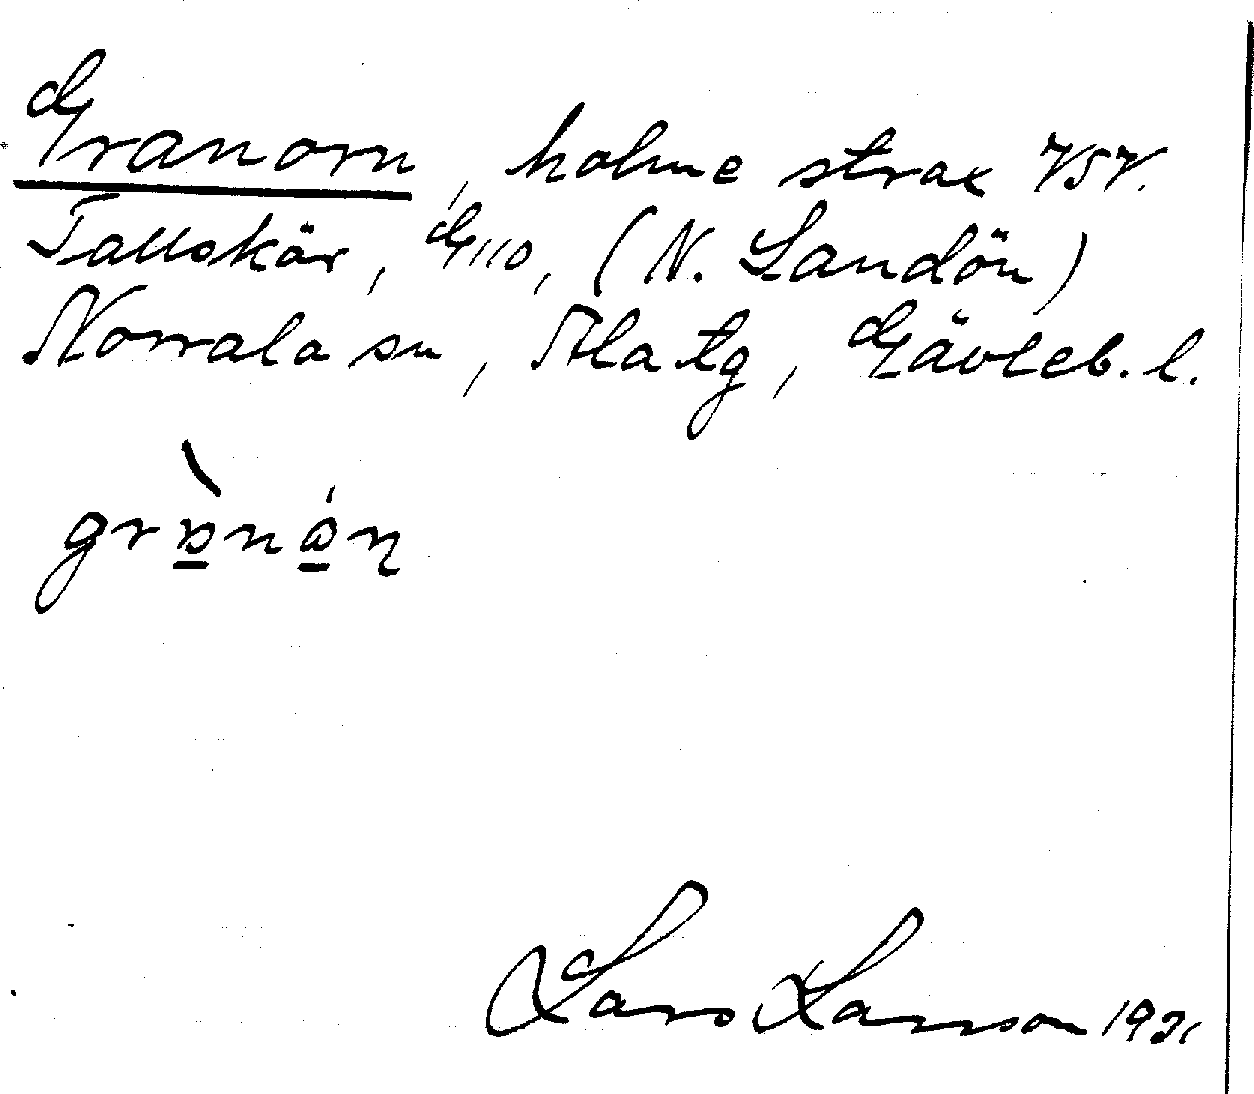 Granorn, holme strax VSV.
Tallskär, G110, (N. Sandön)
Norrala sn, Ala tg, Gävleb. l.
grànón
Lars Larsson 1921